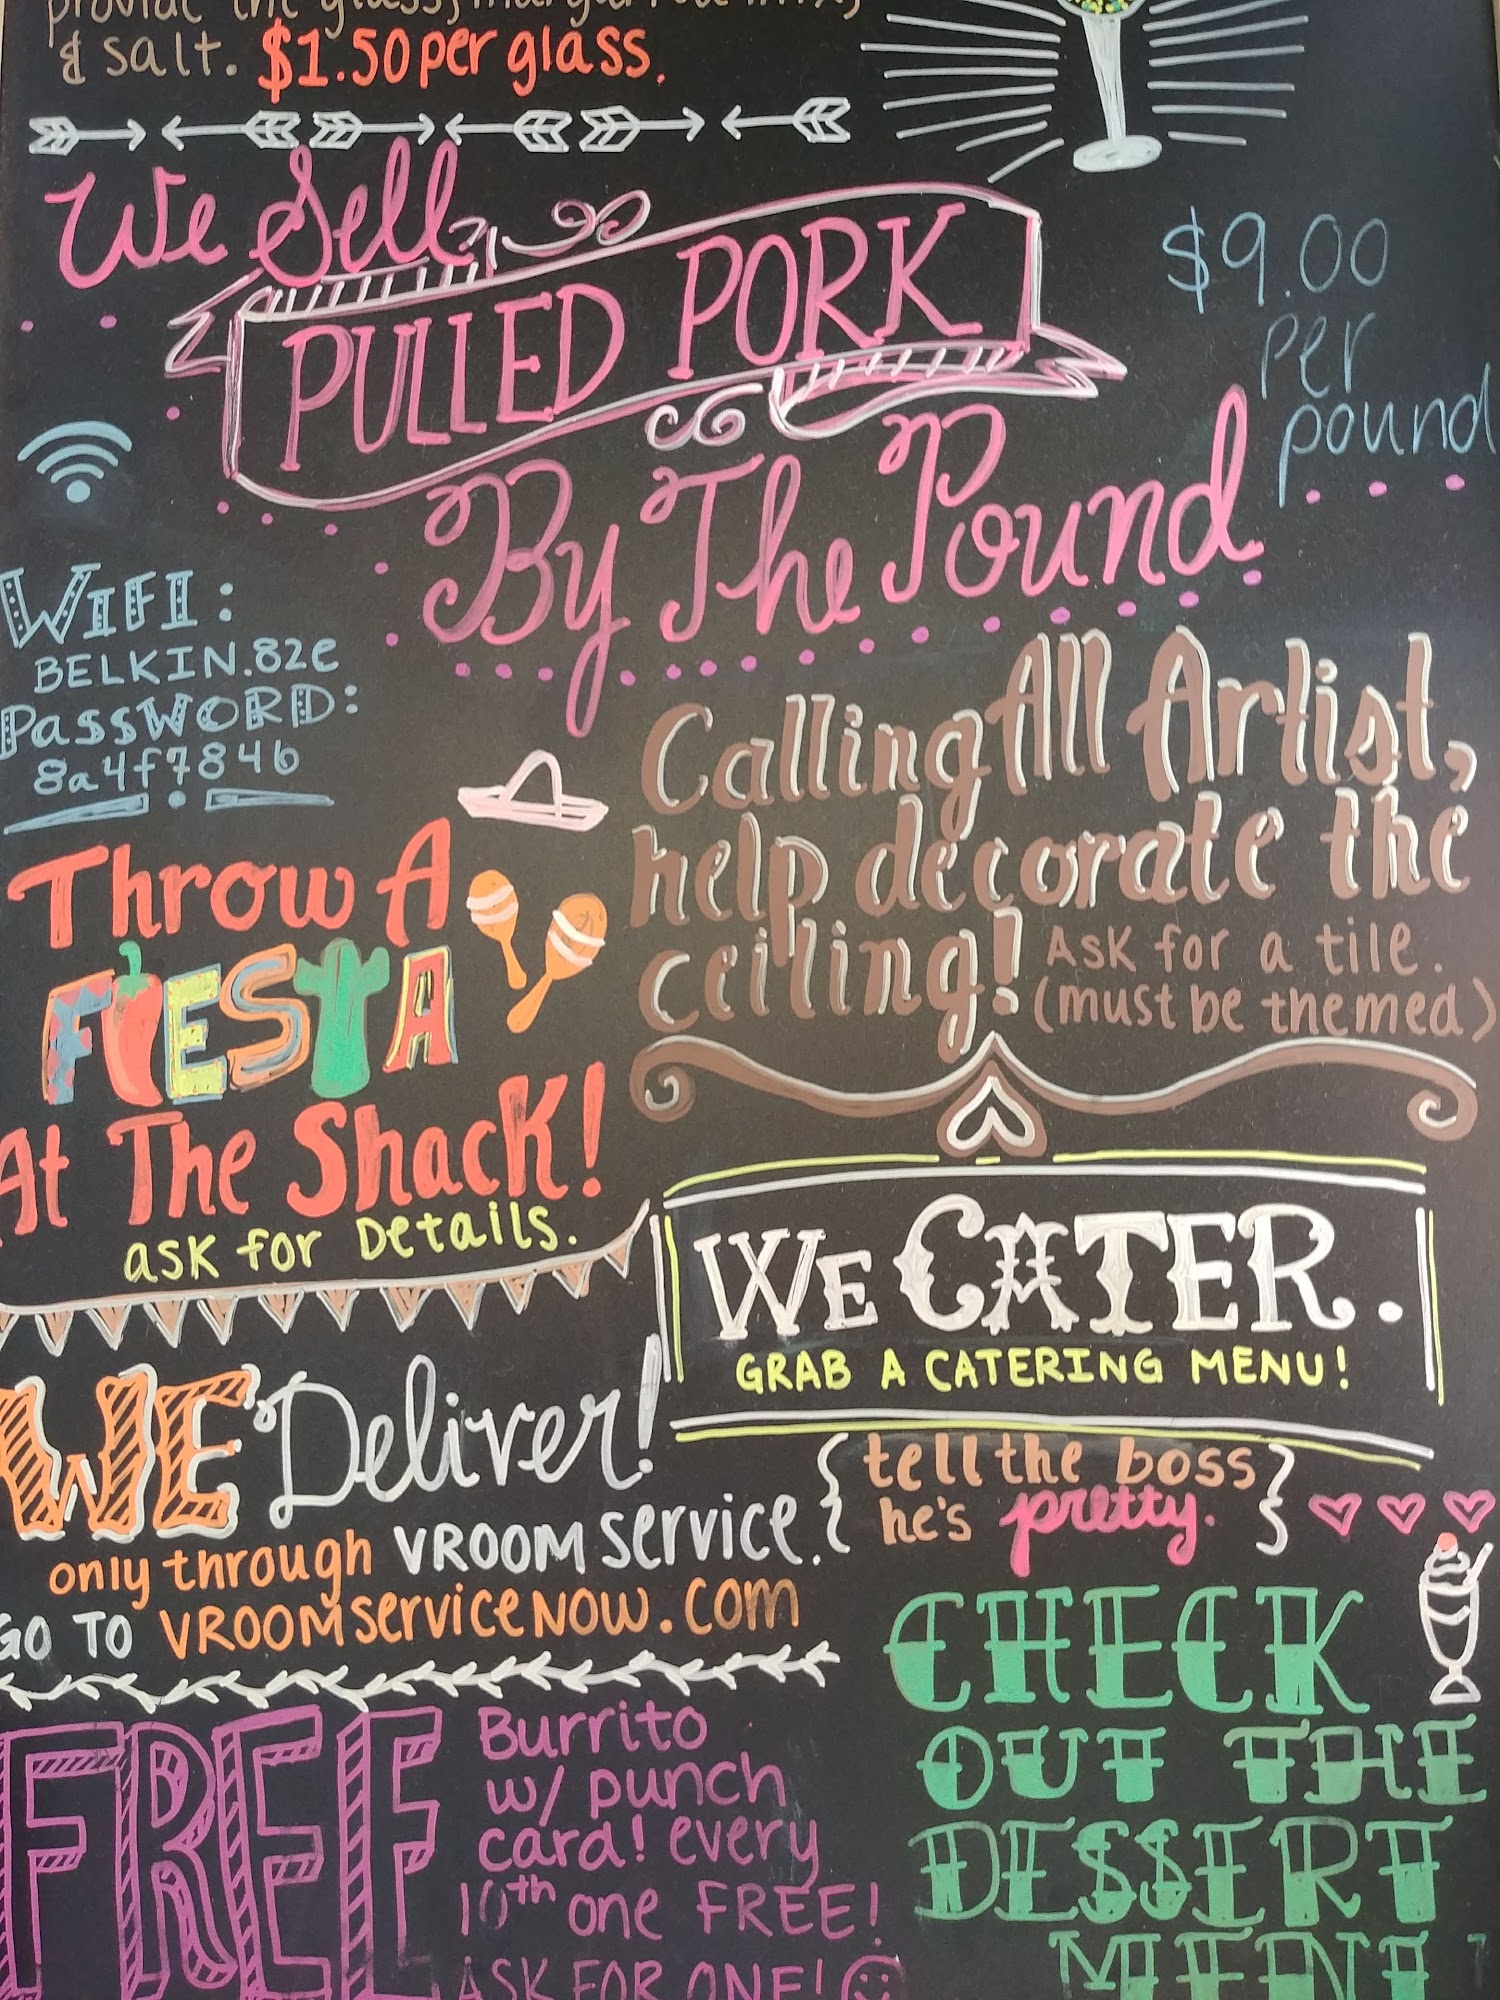 provide the glass, margarita mix,
& salt. $1.50 per glass.
We Sell
PULLED PORK
By The Pound
$9.00
per
pound
WIFI:
BELKIN.82e
PASSWORD:
8a4f784b
Calling All Artist,
help decorate the
ceiling! Ask for a tile.
(must be themed)
THROW A
FIESTA
At The Shack!
ask for Details.
WE CATER.
GRAB A CATERING MENU!
WE Deliver!
only through VROOM service.
GO TO VROOMserviceNOW.com
{tell the boss}
{he's pretty.}
FREE
Burrito
w/ punch
card! every
10th one FREE!
ASK FOR ONE!
CHECK
OUT THE
DESSERT
MENU